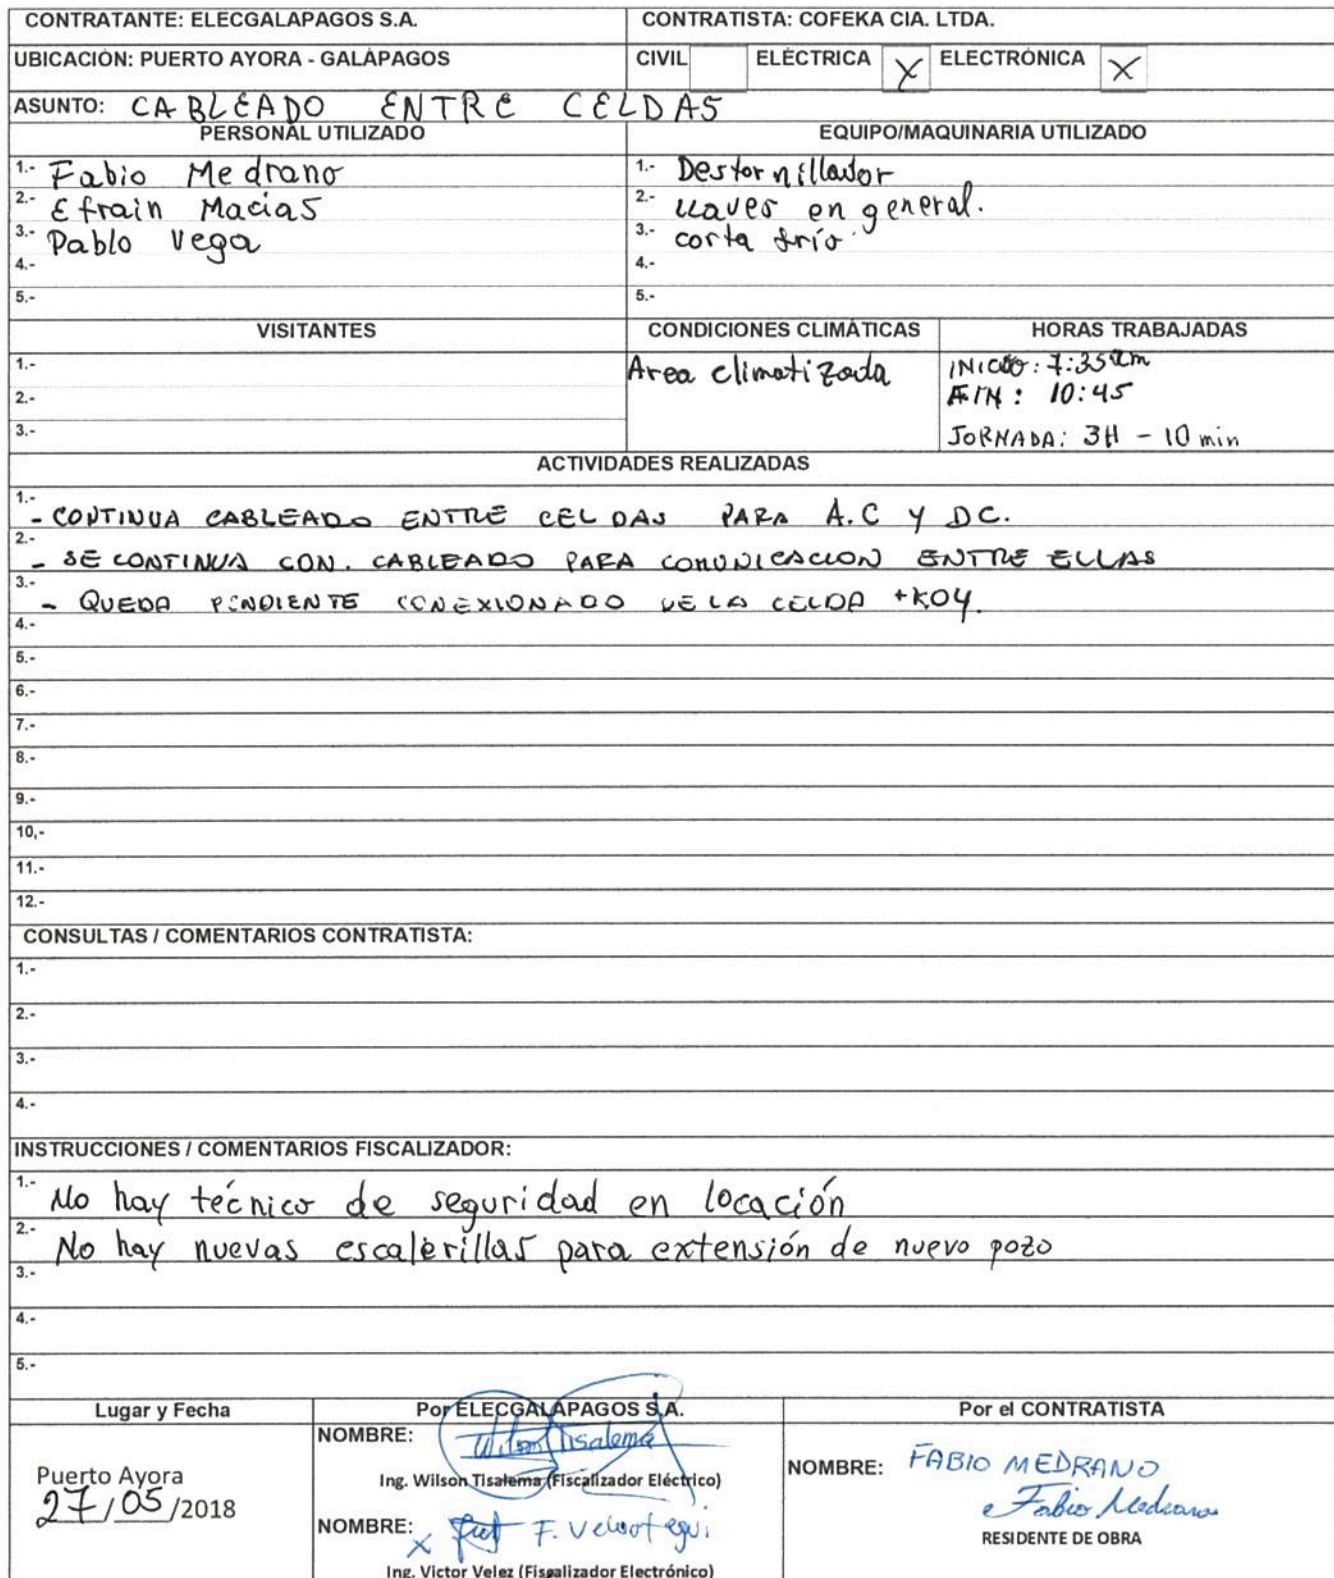 CONTRATANTE: ELECGALAPAGOS S.A. CONTRATISTA: COFEKA CIA. LTDA.
UBICACIÓN: PUERTO AYORA - GALÁPAGOS CIVIL ELÉCTRICA X ELECTRÓNICA X
ASUNTO: CABLEADO ENTRE CELDAS
PERSONAL UTILIZADO EQUIPO/MAQUINARIA UTILIZADO
1.- Fabio Medrano 1.- Destornillador
2.- Efrain Macias 2.- llaves en general.
3.- Pablo Vega 3.- corta frío.
4.- 4.-
5.- 5.-
VISITANTES CONDICIONES CLIMÁTICAS HORAS TRABAJADAS
1.- Area climatizada INICIO: 7:35 am
2.- FIN: 10:45
3.- JORNADA: 3H - 10 min
ACTIVIDADES REALIZADAS
1.- - CONTINUA CABLEADO ENTRE CELDAS PARA A.C Y DC.
2.- - SE CONTINUA CON. CABLEADO PARA COMUNICACION ENTRE ELLAS
3.- - QUEDA PENDIENTE CONEXIONADO DE LA CELDA +K04.
4.-
5.-
6.-
7.-
8.-
9.-
10,-
11.-
12.-
CONSULTAS / COMENTARIOS CONTRATISTA:
1.-
2.-
3.-
4.-
INSTRUCCIONES / COMENTARIOS FISCALIZADOR:
1.- No hay técnico de seguridad en locación
2.- No hay nuevas escalerillas para extensión de nuevo pozo
3.-
4.-
5.-
Lugar y Fecha Por ELECGALÁPAGOS S.A. Por el CONTRATISTA
NOMBRE: Wilson Tisalema
Ing. Wilson Tisalema (Fiscalizador Eléctrico)
Puerto Ayora
27/05/2018
NOMBRE: X F.
Ing. Victor Velez (Fiscalizador Electrónico)
NOMBRE: FABIO MEDRANO
Fabio Medrano
RESIDENTE DE OBRA